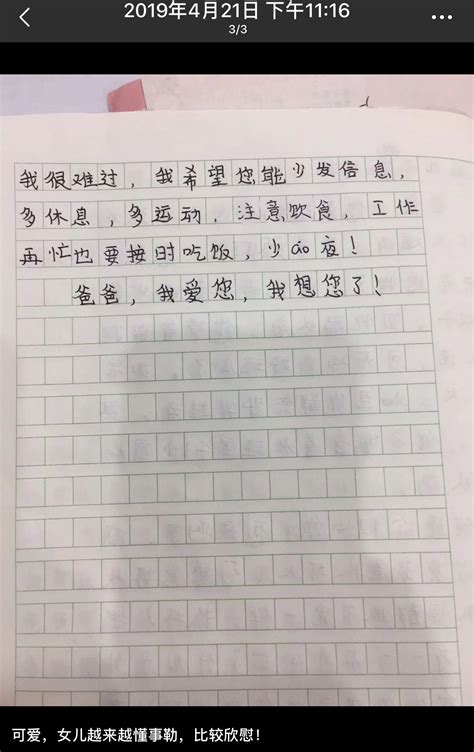 2019年4月21日 下午11:16
3/3
我很难过，我希望您能少发信息，
多休息，多运动，注意饮食，工作
再忙也要按时吃饭，少áo夜！
爸爸，我爱您，我想您了！
可爱，女儿越来越懂事勒，比较欣慰！